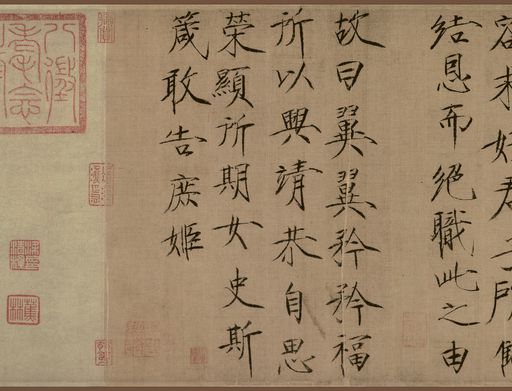 容求好君子所讎
結恩而絕職此之由
故曰翼翼矜矜福
所以興靖恭自思
榮顯所期女史斯
箴敢告庶姬
八徵耄念